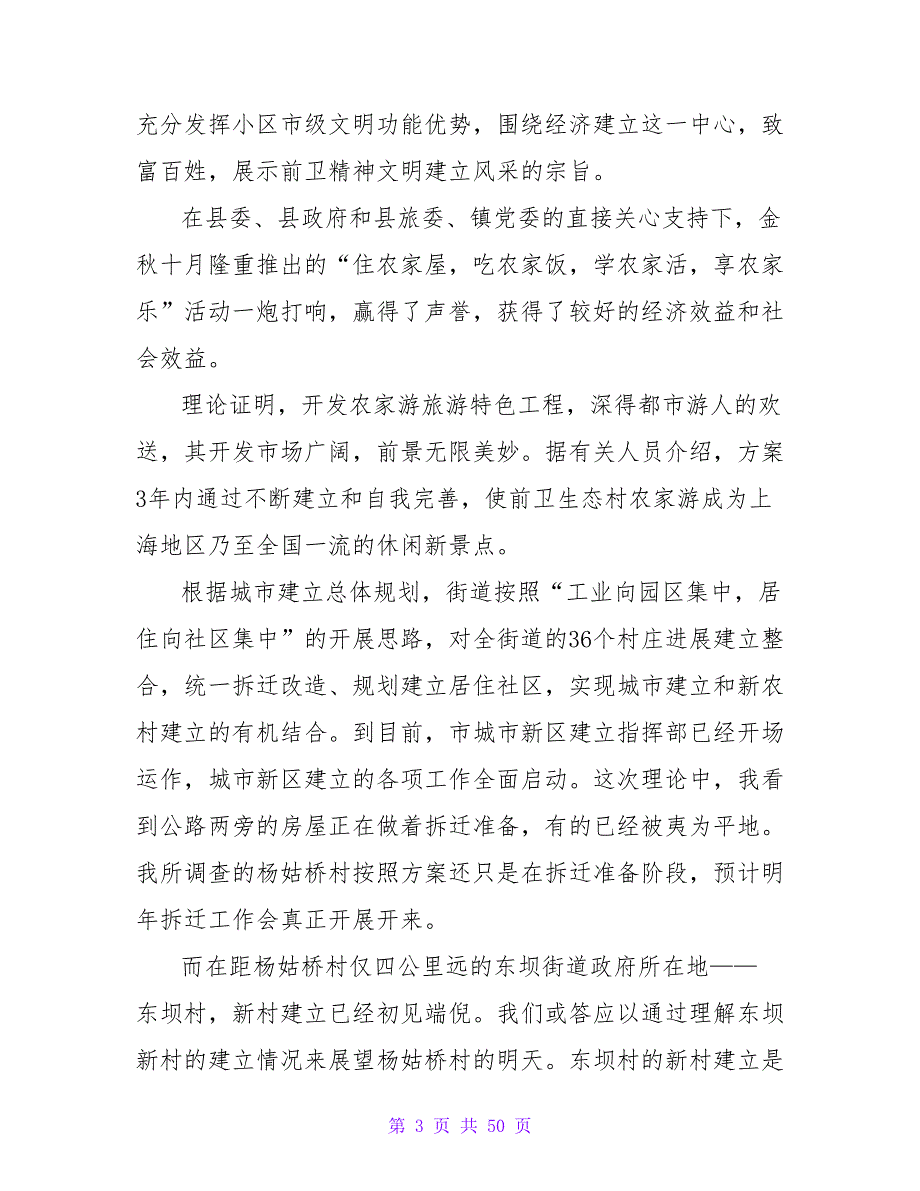 充分发挥小区市级文明功能优势，围绕经济建立这一中心，致
富百姓，展示前卫精神文明建立风采的宗旨。
在县委、县政府和县旅委、镇党委的直接关心支持下，金
秋十月隆重推出的“住农家屋，吃农家饭，学农家活，享农家
乐”活动一炮打响，赢得了声誉，获得了较好的经济效益和社
会效益。
理论证明，开发农家游旅游特色工程，深得都市游人的欢
送，其开发市场广阔，前景无限美妙。据有关人员介绍，方案
3年内通过不断建立和自我完善，使前卫生态村农家游成为上
海地区乃至全国一流的休闲新景点。
根据城市建立总体规划，街道按照“工业向园区集中，居
住向社区集中”的开展思路，对全街道的36个村庄进展建立整
合，统一拆迁改造、规划建立居住社区，实现城市建立和新农
村建立的有机结合。到目前，市城市新区建立指挥部已经开场
运作，城市新区建立的各项工作全面启动。这次理论中，我看
到公路两旁的房屋正在做着拆迁准备，有的已经被夷为平地。
我所调查的杨姑桥村按照方案还只是在拆迁准备阶段，预计明
年拆迁工作会真正开展开来。
而在距杨姑桥村仅四公里远的东坝街道政府所在地——
东坝村，新村建立已经初见端倪。我们或答应以通过理解东坝
新村的建立情况来展望杨姑桥村的明天。东坝村的新村建立是
第 3 页 共 50 页